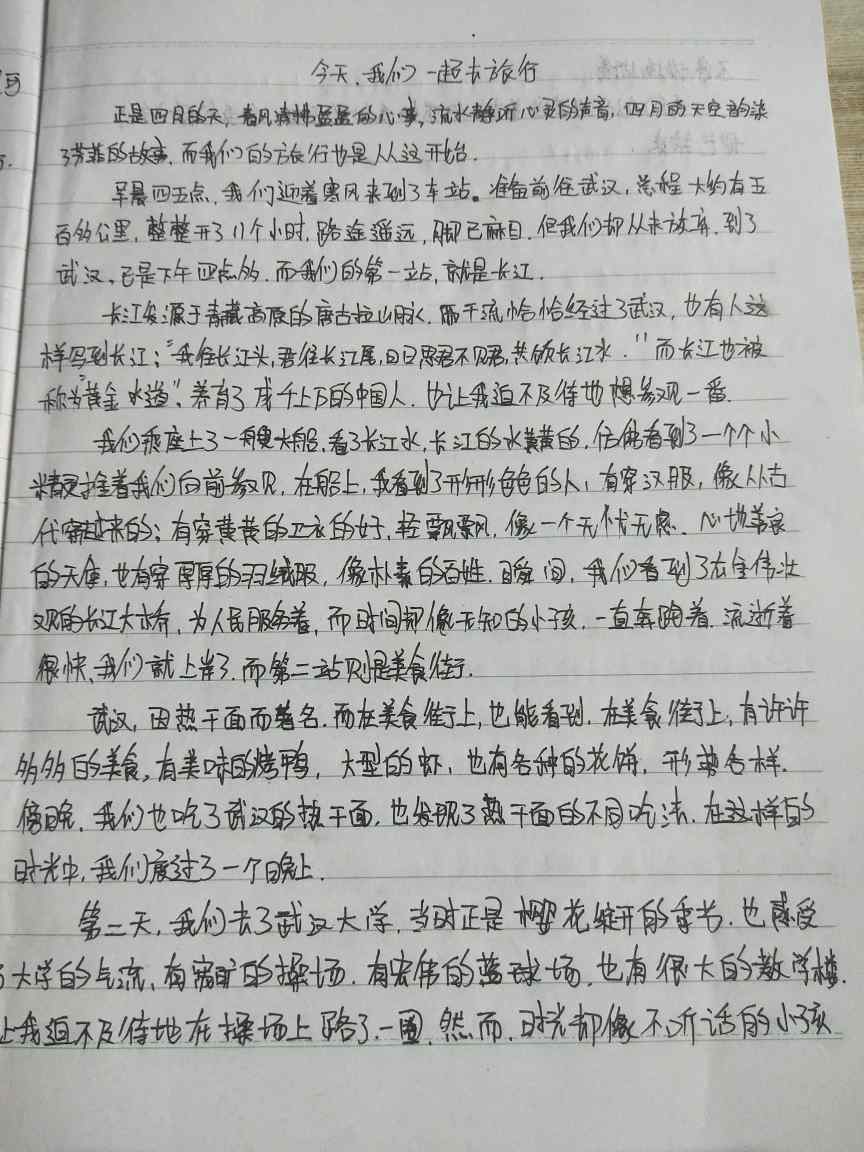 今天、我们一起去旅行
正是四月的天，春风清拂盈盈的心事，流水静听心灵的声音，四月的天空韵染
了芳菲的故事，而我们的旅行也是从这开始．
早晨四五点，我们迎着寒风来到了车站。准备前往武汉，总程大约有五
百多公里，整整开了11个小时，路途遥远，脚已麻目．但我们却从未放弃．到了
武汉，已是下午四点多．而我们的第一站，就是长江．
长江发源于青藏高原的唐古拉山脉．而干流恰恰经过了武汉，也有人这
样写到长江："我住长江头，君住长江尾，日日思君不见君，共饮长江水．"而长江也被
称为"黄金水道"，养育了成千上万的中国人．也让我迫不及待地想参观一番．
我们乘座上了一艘大船，看了长江水，长江的水黄黄的，仿佛看到了一个个小
精灵推着我们向前参观．在船上，我看到了形形色色的人，有穿汉服，像从古
代穿越来的；有穿黄黄的卫衣的好，轻飘飘，像一个无忧无虑、心地善良
的天使，也有穿厚厚的羽绒服，像朴素的百姓．瞬间，我们看到了宏伟壮
观的长江大桥，为人民服务着，而时间却像无知的小孩．一直奔跑着．流逝着
很快，我们就上岸了．而第二站则是美食街．
武汉，因热干面而著名．而在美食街上，也能看到．在美食街上，有许许
多多的美食，有美味的烤鸭，大型的虾，也有各种的花饼，形势各样．
傍晚．我们也吃了武汉的热干面，也发现了热干面的不同吃法．在这样的
时光中，我们度过了一个晚上．
第二天，我们去了武汉大学．当时正是樱花绽开的季节．也感受
了大学的气流，有宽旷的操场．有宏伟的篮球场．也有很大的教学楼．
让我迫不及待地在操场上跑了一圈．然而，时光却像不听话的小孩